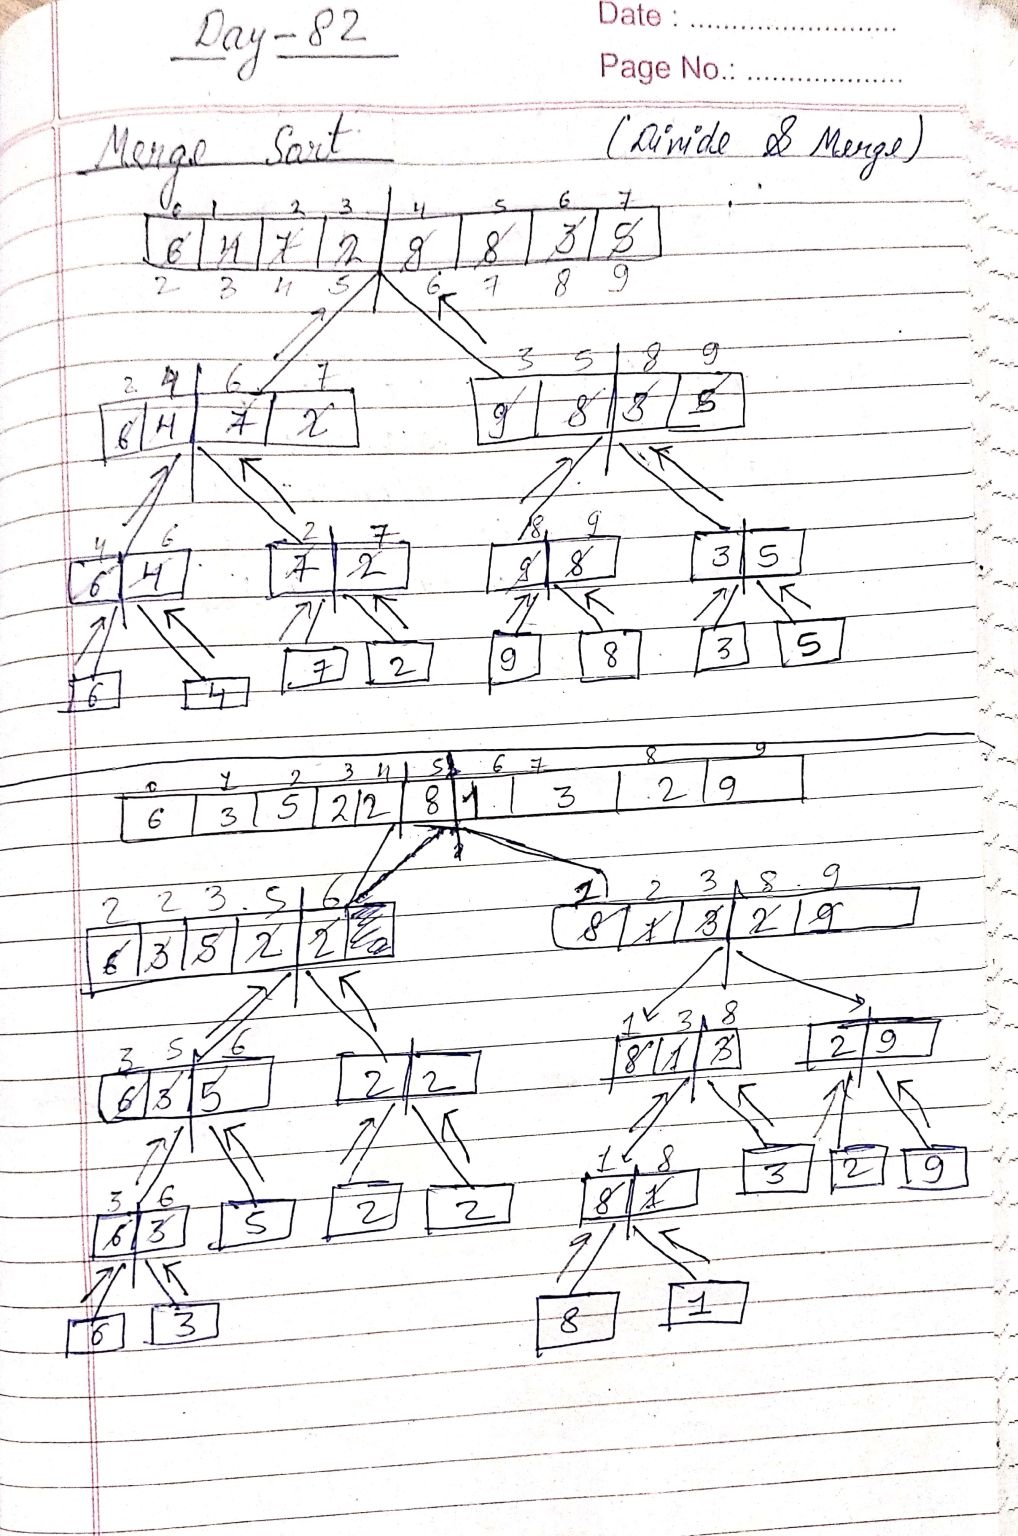 Day-82
Date : ..........................
Page No.: ...................
Merge Sort (Divide & Merge)
0 1 2 3 4 5 6 7
6 4 7 2 9 8 3 5
2 3 4 5 6 7 8 9
2 4 6 7 3 5 8 9
6 4 7 2 9 8 3 5
4 6 2 7 8 9
6 4 7 2 9 8 3 5
6 4 7 2 9 8 3 5
0 1 2 3 4 5 6 7 8 9
6 3 5 2 2 8 1 3 2 9
2 2 3 5 6 1 2 3 8 9
6 3 5 2 2 8 1 3 2 9
3 5 6 1 3 8
6 3 5 2 2 8 1 3 2 9
3 6 1 8
6 3 5 2 2 8 1 3 2 9
6 3 8 1